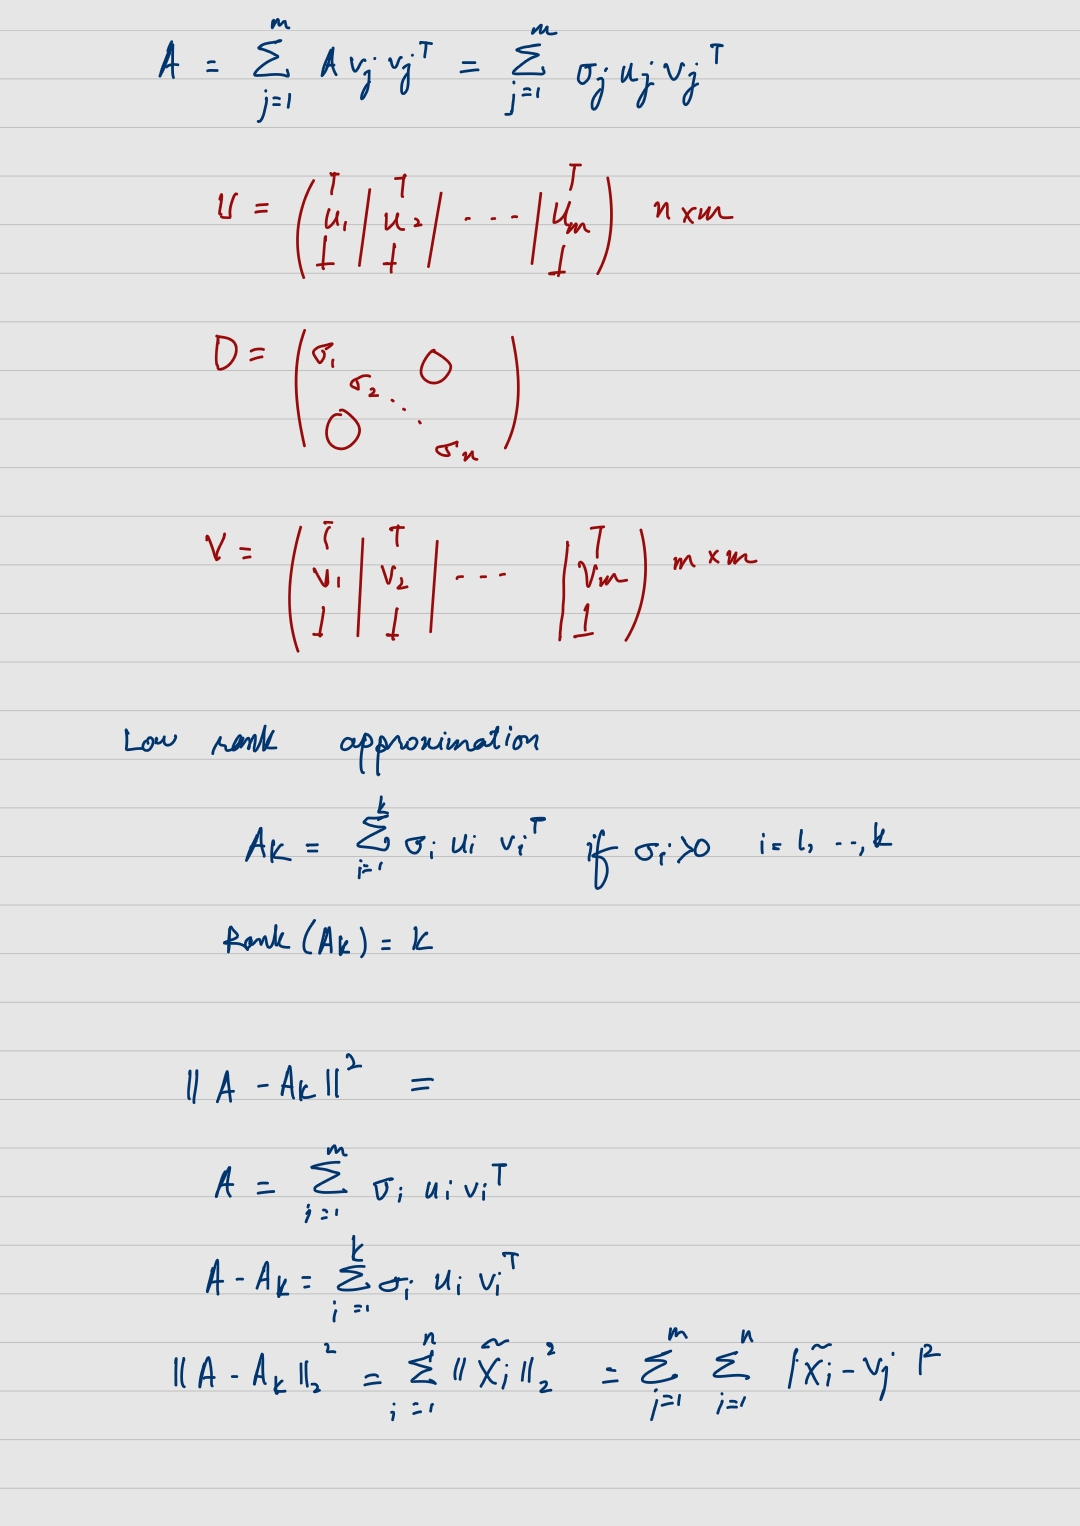 A = ∑_{j=1}^{m} A v_j v_j^T = ∑_{j=1}^{m} σ_j u_j v_j^T
U = ( u_1 | u_2 | ... | u_m ) n × m
D = ( σ_1 σ_2 ⋱ σ_n 0 0 )
V = ( v_1 | v_2 | ... | v_m ) m × m
Low rank approximation
A_k = ∑_{i=1}^{k} σ_i u_i v_i^T if σ_i > 0 i = 1, .., k
Rank (A_k) = k
‖ A - A_k ‖^2 =
A = ∑_{i=1}^{m} σ_i u_i v_i^T
A - A_k = ∑_{i=1}^{k} σ_i u_i v_i^T
‖ A - A_k ‖_2^2 = ∑_{i=1}^{n} ‖ x̃_i ‖_2^2 = ∑_{j=1}^{m} ∑_{i=1}^{n} | x̃_i - v_j |^2